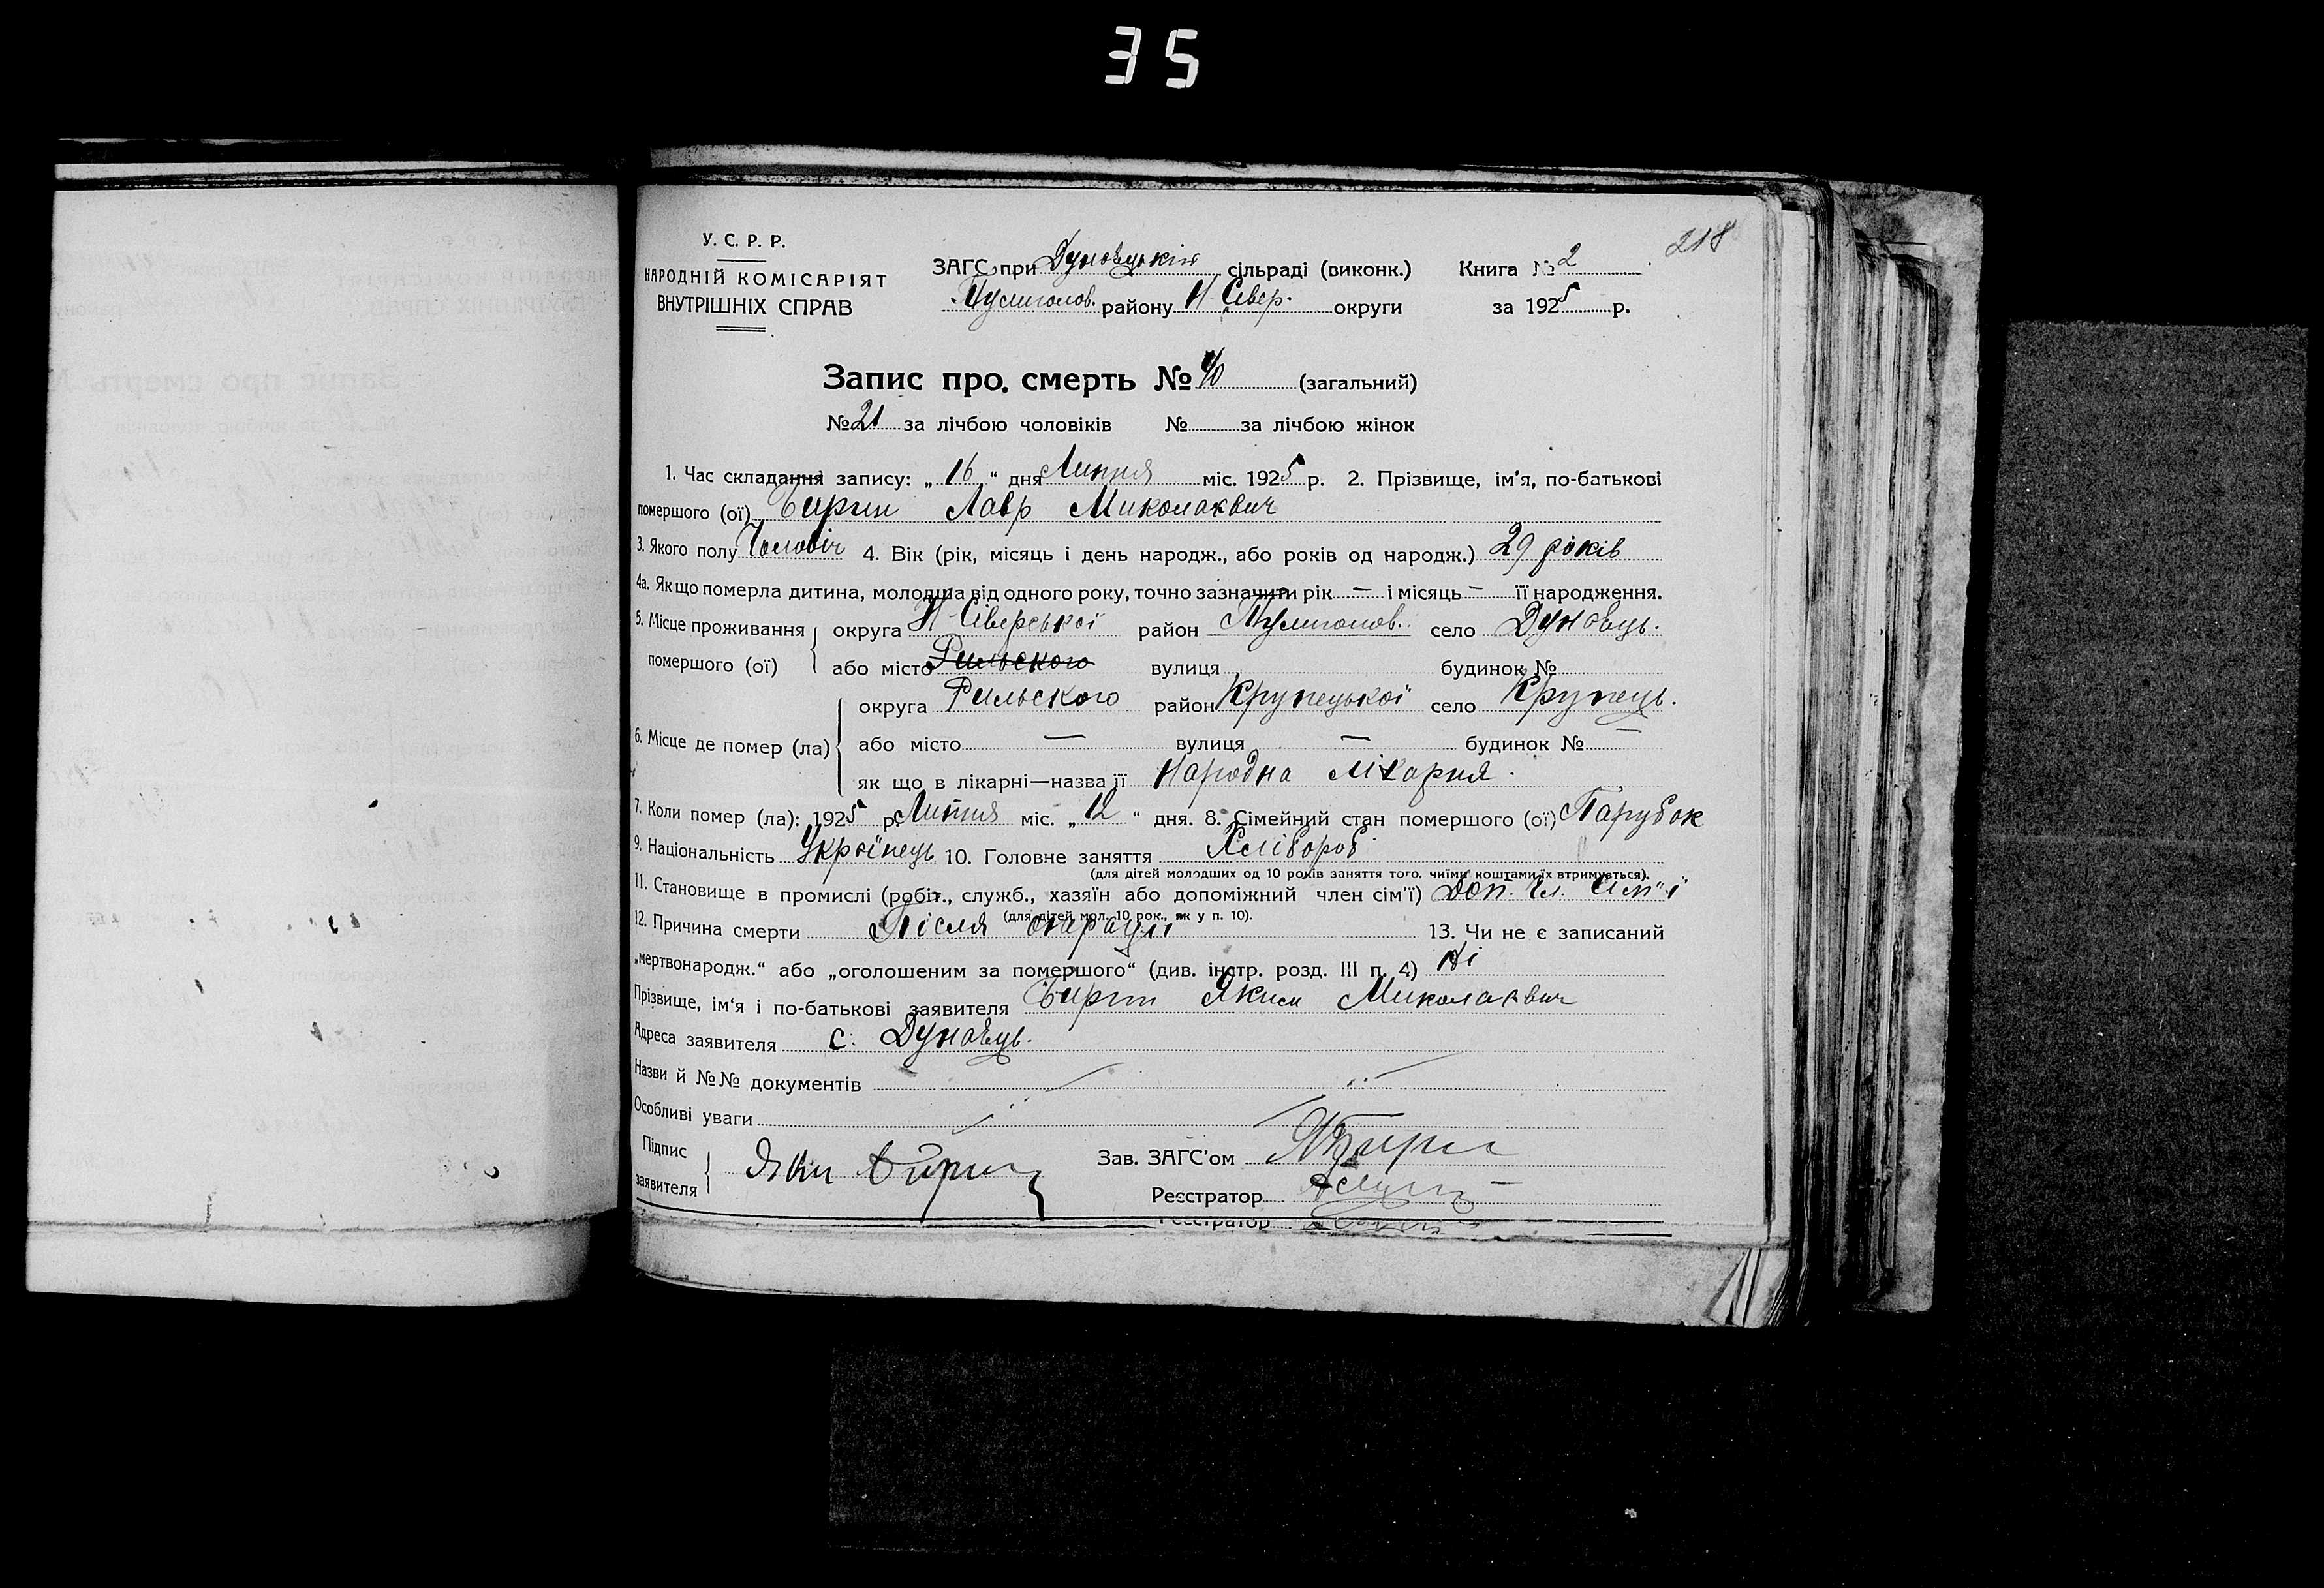 35
218
У. С. Р. Р.
НАРОДНІЙ КОМІСАРІЯТ
ВНУТРІШНІХ СПРАВ
ЗАГС при Дуновецькій сільраді (виконк.) Книга № 2
району Н Сівер. округи за 1925 р.
Запис про смерть № 40 (загальний)
№ 21 за лічбою чоловіків № за лічбою жінок
1. Час складання запису: „ 16 “ дня Липня міс. 1925 р. 2. Прізвище, ім'я, по-батькові
помершого (ої) Бирин Лавр Миколаєвич
3. Якого полу Чоловіч 4. Вік (рік, місяць і день народж., або років од народж.) 29 років
4а. Як що померла дитина, молодша від одного року, точно зазначити рік — і місяць — її народження.
5. Місце проживання округа Н-Сіверської район село Дуновець.
помершого (ої) або місто Рильского вулиця будинок №
округа Рильского район Крупецької село Крупець.
6. Місце де помер (ла) або місто — вулиця — будинок № —
як що в лікарні—назва її Народна лікарня.
7. Коли помер (ла): 1925 р. Липня міс. „ 12 “ дня. 8. Сімейний стан помершого (ої) Парубок
9. Національність Украінець 10. Головне заняття Хлібороб
(для дітей молодших од 10 років заняття того, чиїми коштами їх втримується).
11. Становище в промислі (робіт., служб., хазяїн або допоміжний член сім'ї) Доп. Чл. сем'ї
(для дітей мол. 10 рок., як у п. 10).
12. Причина смерти Після операціі 13. Чи не є записаний
„мертвонародж.“ або „оголошеним за помершого“ (див. інстр. розд. III п. 4) Ні
Прізвище, ім'я і по-батькові заявителя Бирин Яким Миколаєвич
Адреса заявителя с. Дуновець.
Назви й №№ документів
Особливі уваги
Підпис
заявителя Яким Бирин
Зав. ЗАГС'ом
Реєстратор
Реєстратор